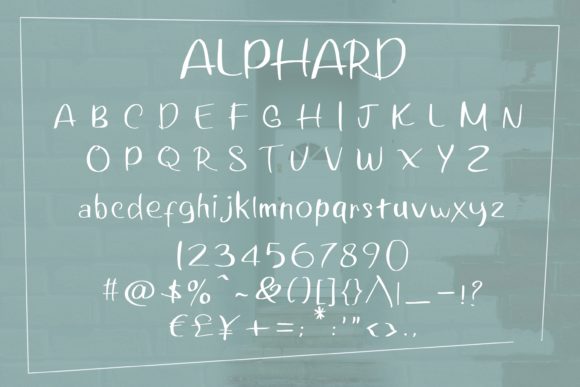 ALPHARD
A B C D E F G H I J K L M N
O P Q R S T U V W X Y Z
abcdefghijklmnopqrstuvwxyz
1234567890
#@$%^~&()[]{}/\|_-!?
€£¥+=;*:'"<>.,